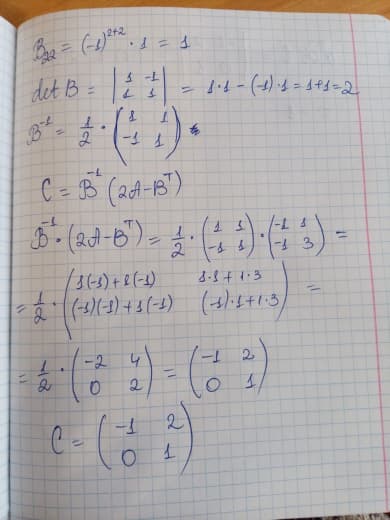 B₂₂ = (-1)²⁺² · 1 = 1
det B = | 1 -1 ; 1 1 | = 1·1 - (-1)·1 = 1+1 = 2
B⁻¹ = 1/2 · ( 1 1 ; -1 1 )
C = B⁻¹ (2A - Bᵀ)
B⁻¹ · (2A - Bᵀ) = 1/2 · ( 1 1 ; -1 1 ) · ( -1 1 ; -1 3 ) =
= 1/2 · ( 1(-1)+1(-1) 1·1+1·3 ; (-1)(-1)+1(-1) (-1)·1+1·3 ) =
= 1/2 · ( -2 4 ; 0 2 ) = ( -1 2 ; 0 1 )
C = ( -1 2 ; 0 1 )